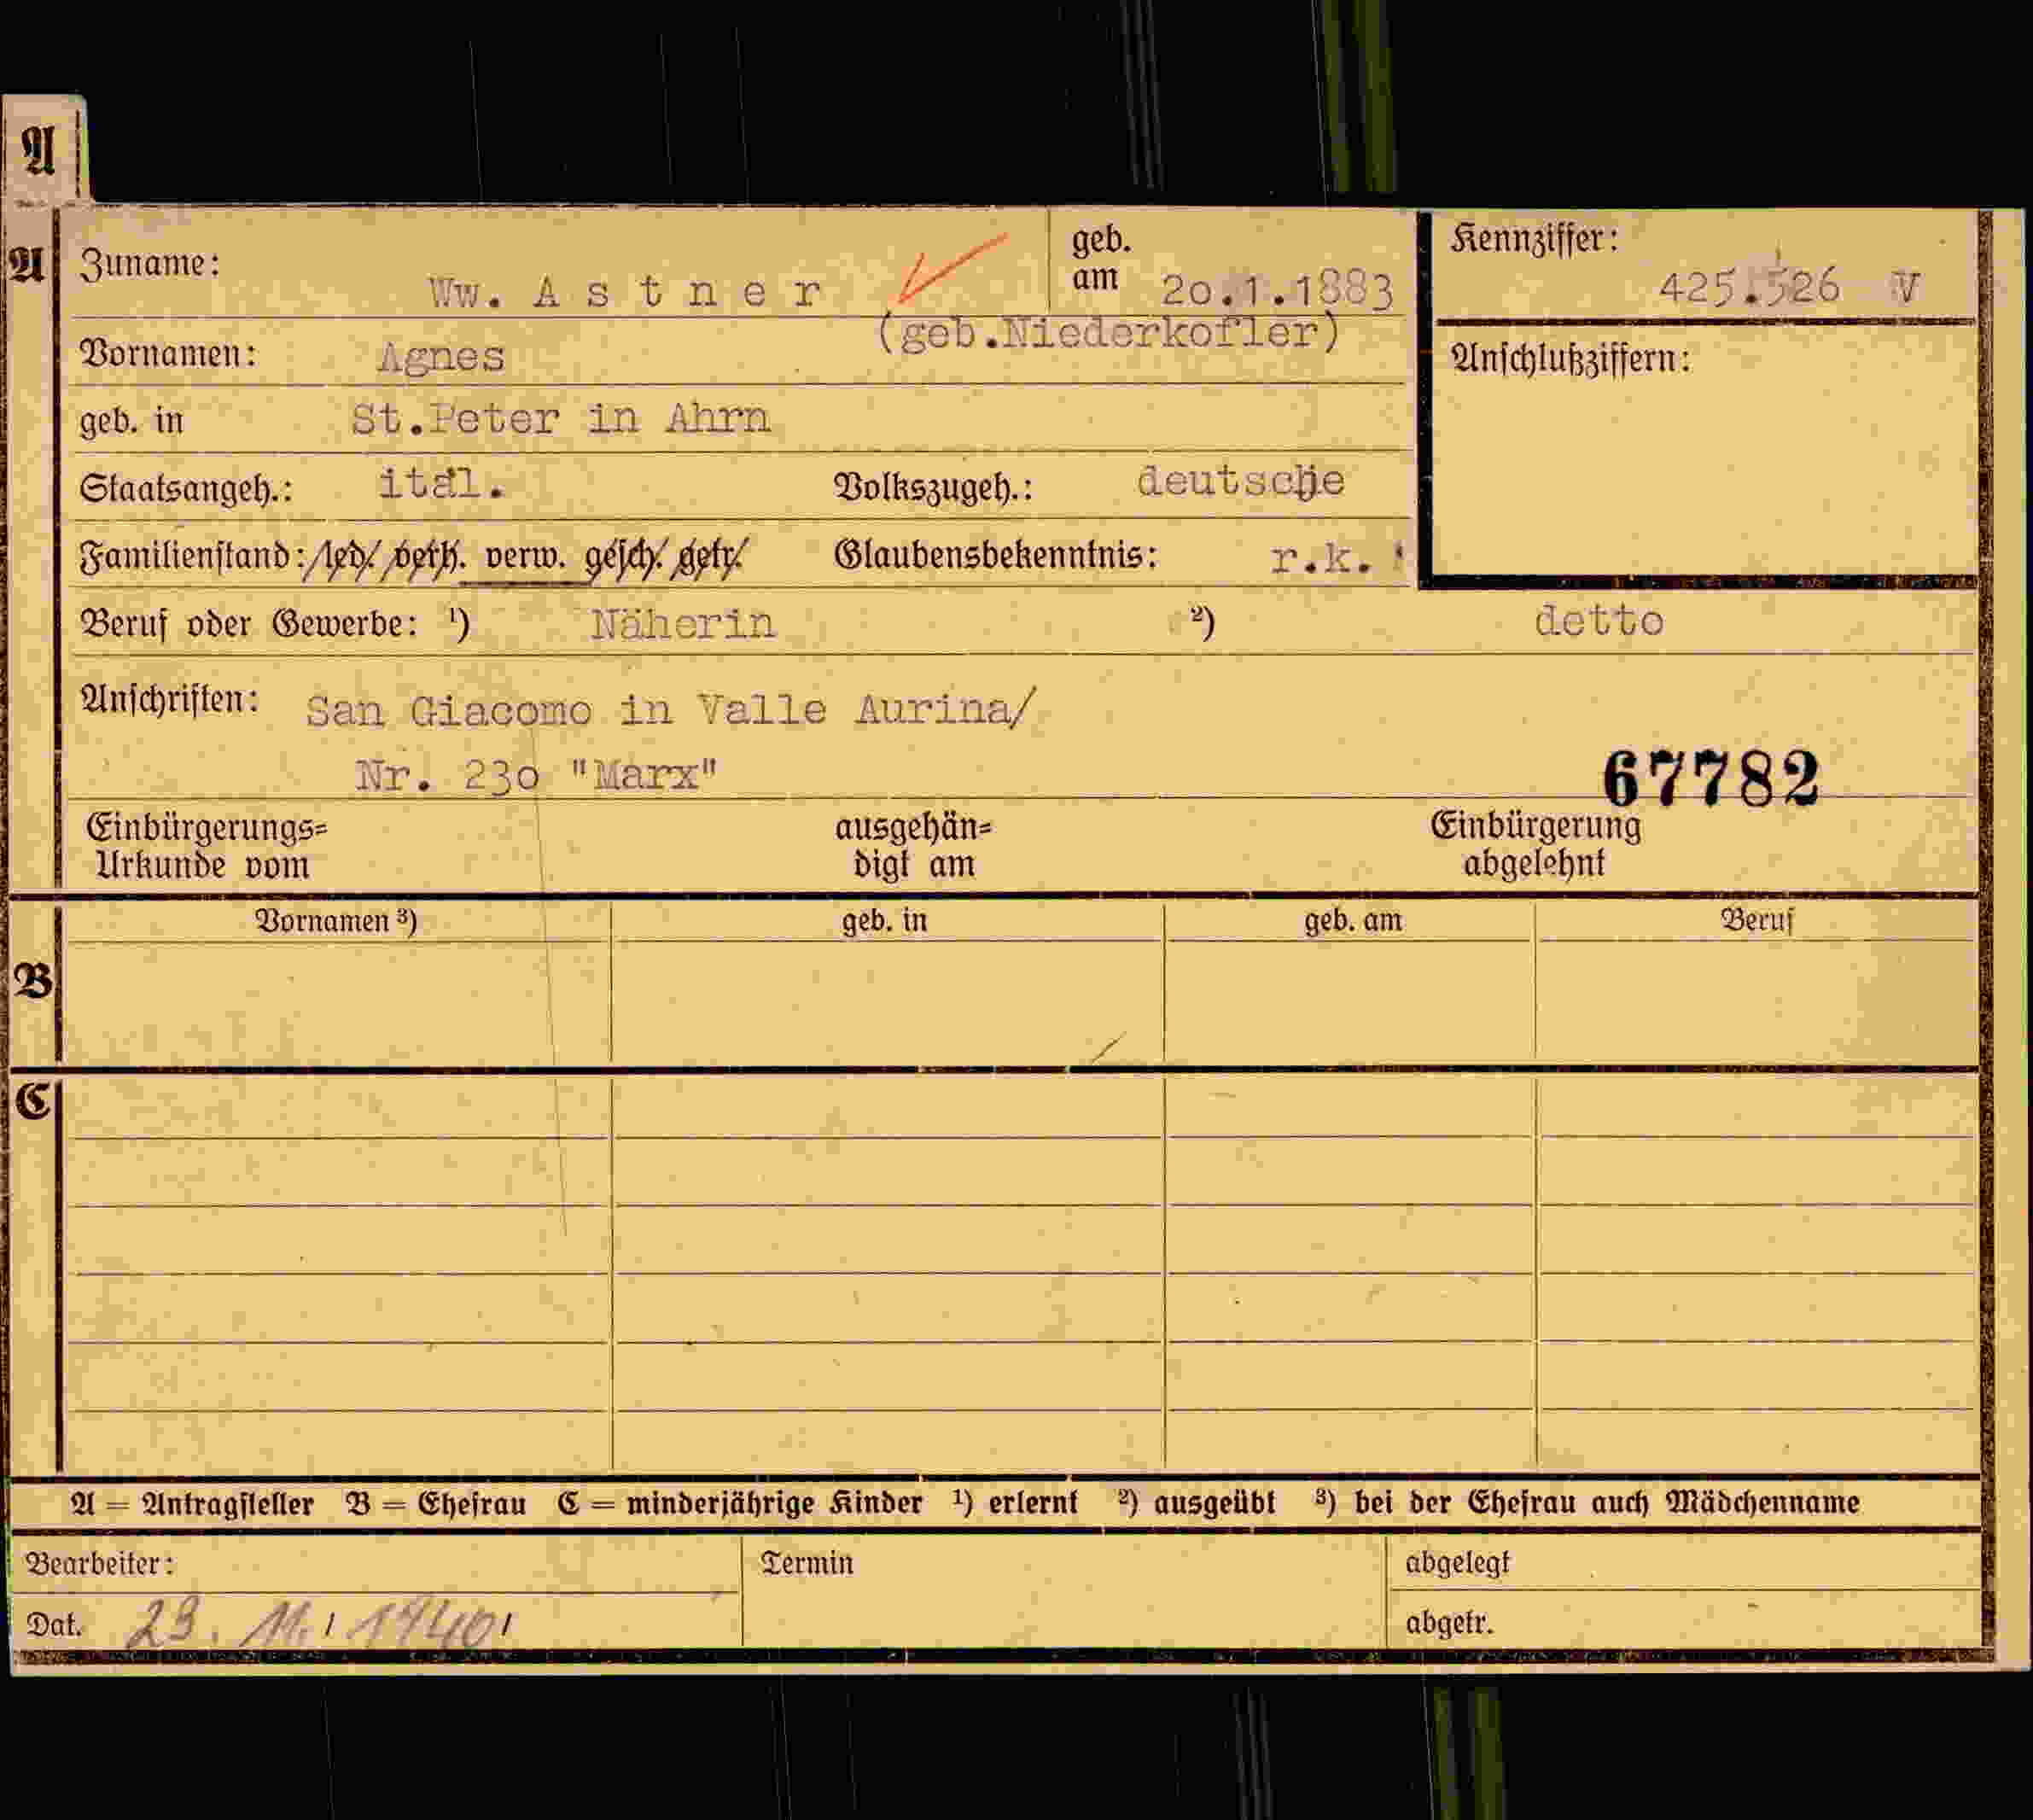 A
A
Zuname: Ww. A s t n e r
geb. am 2o.1.1883
Kennziffer: 425.526 V
(geb.Niederkofler)
Vornamen: Agnes
Anschlußziffern:
geb. in St.Peter in Ahrn
Staatsangeh.: ital. Volkszugeh.: deutsche
Familienstand: led. verh. verw. gesch. getr. Glaubensbekenntnis: r.k.
Beruf oder Gewerbe: ¹) Näherin ²) detto
Anschriften: San Giacomo in Valle Aurina/
Nr. 23o "Marx"
67782
Einbürgerungs=
Urkunde vom
ausgehän=
digt am
Einbürgerung
abgelehnt
B
Vornamen ³) geb. in geb. am Beruf
C
A = Antragsteller B = Ehefrau C = minderjährige Kinder ¹) erlernt ²) ausgeübt ³) bei der Ehefrau auch Mädchenname
Bearbeiter: Termin abgelegt
Dat. 23. 11. 1940 abgetr.